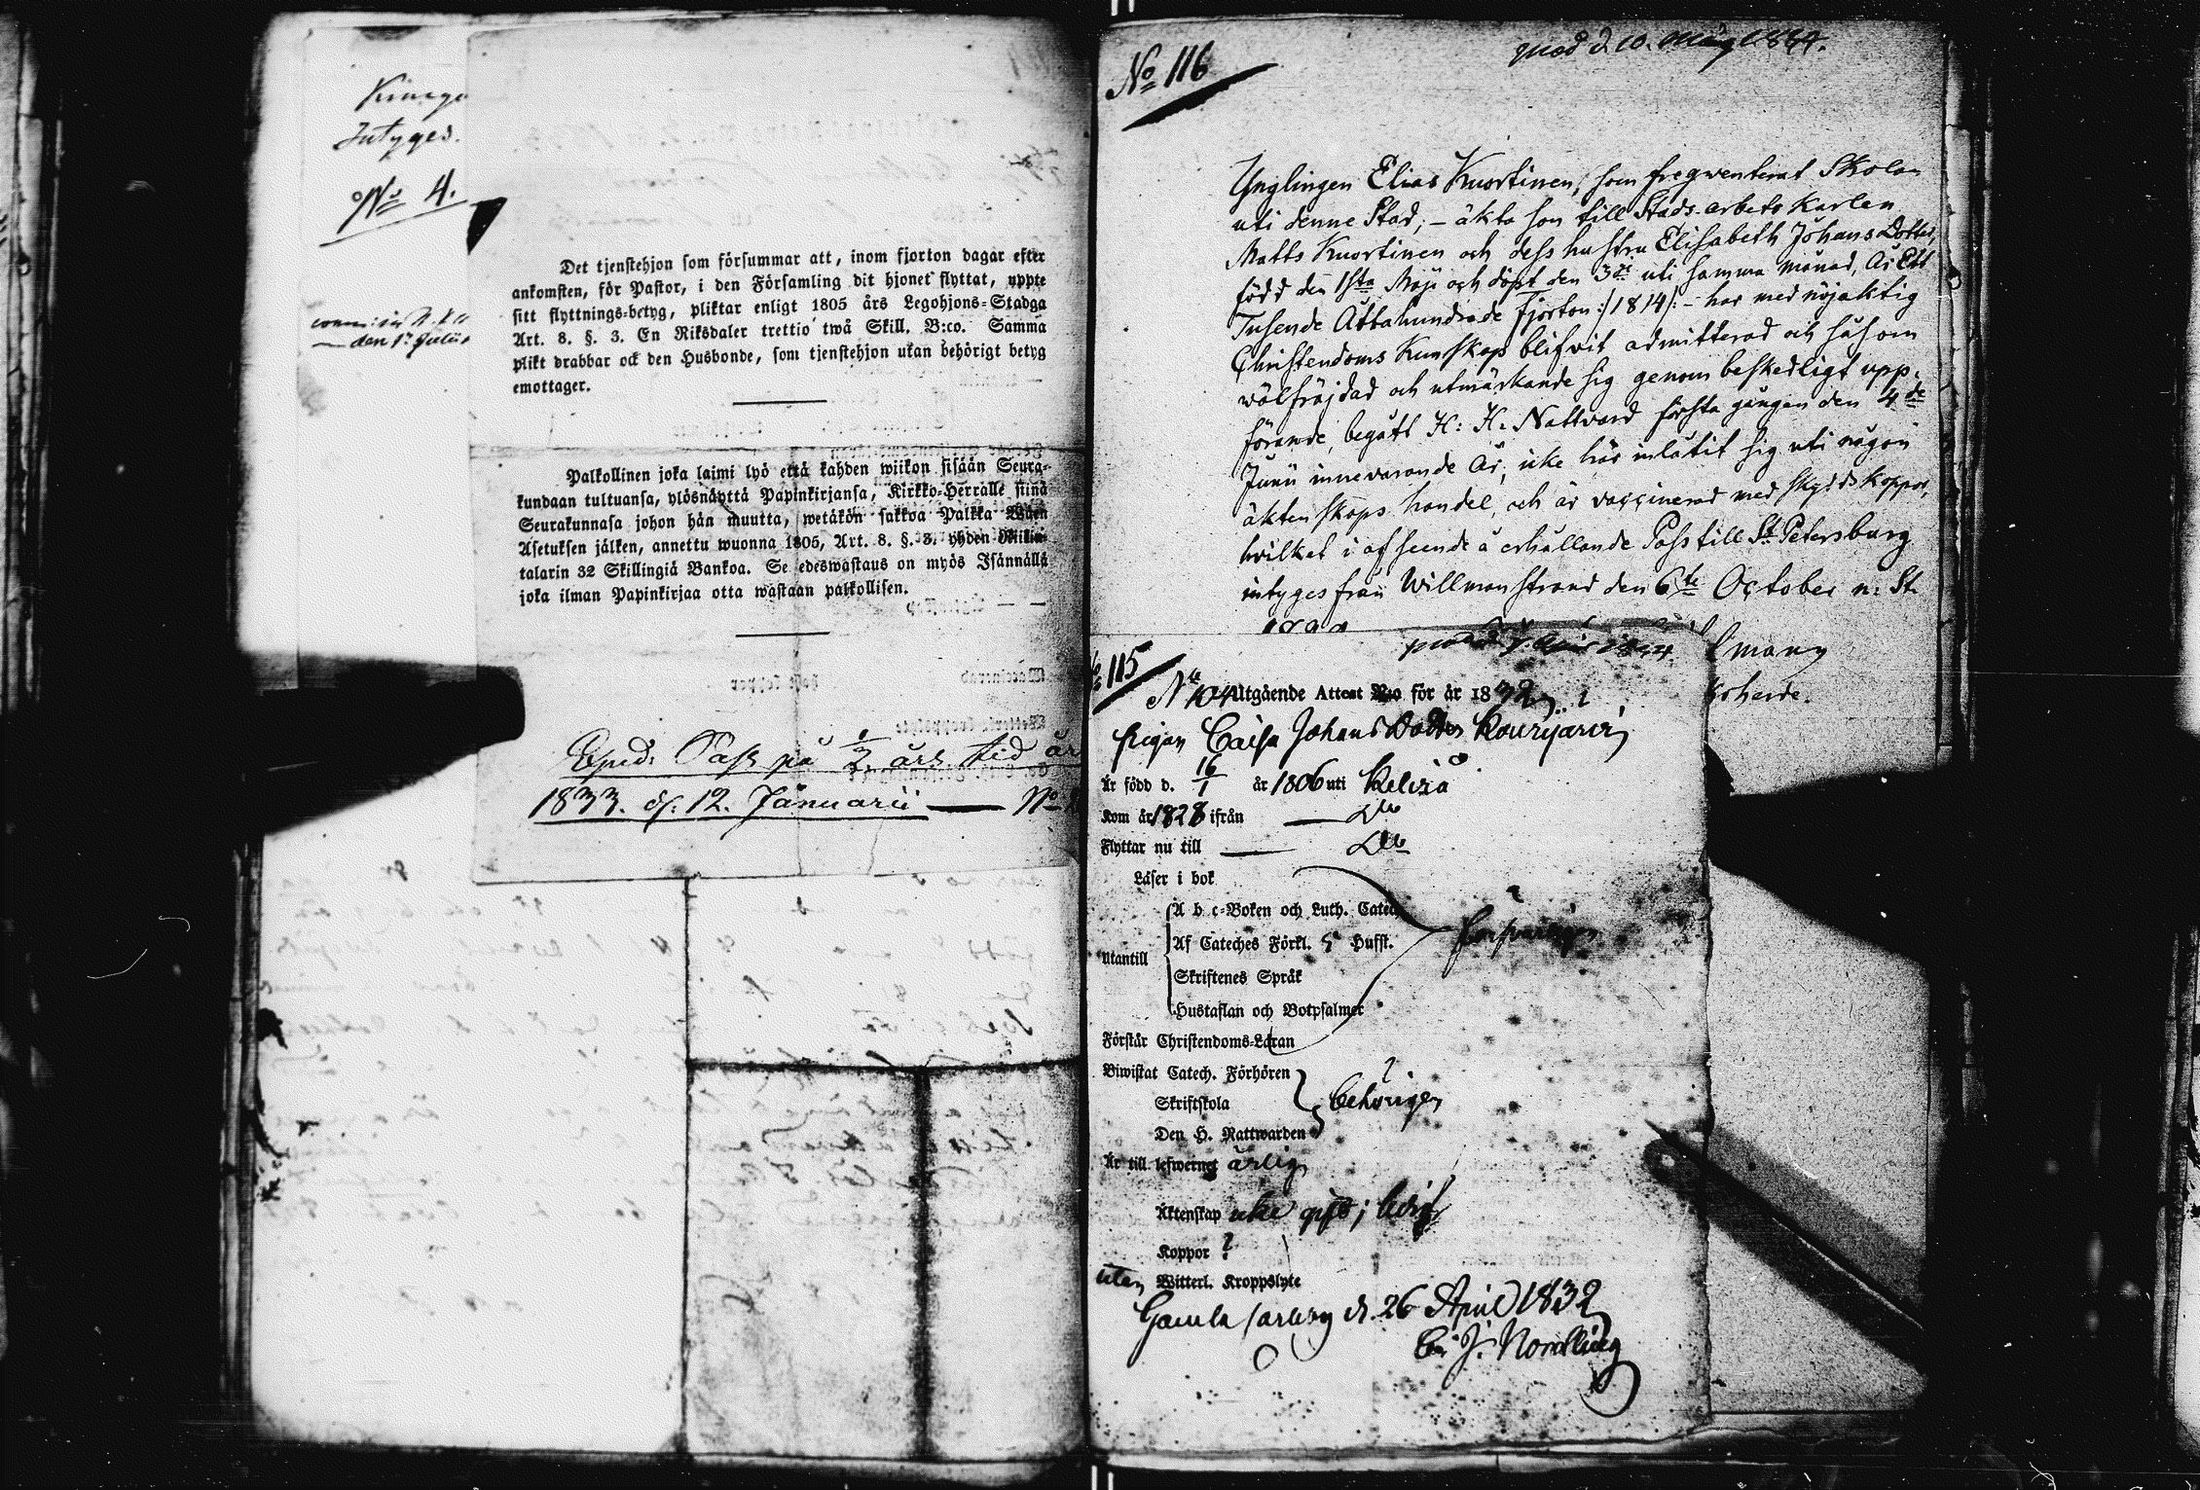 Intyges.
No 4.
Det tjenstehjon som försummar att, inom fjorton dagar efter
ankomsten, för Pastor, i den Församling dit hjonet flyttat, uppte
sitt flyttnings-betyg, pliktar enligt 1805 års Legohjons-Stadga
Art. 8. §. 3. En Riksdaler trettio twå Skill. B:co. Samma
plikt drabbar ock den Husbonde, som tjenstehjon utan behörigt betyg
emottager.
Palkollinen joka laimi lyö että kahden wiikon sisään Seura-
kundaan tultuansa, ylösnäyttä Papinkirjansa, Kirkko-Herralle siinä
Seurakunnasa johon hän muutta, wetäkön sakkoa Palkka Wäen
Asetuksen jälken, annettu wuonna 1805, Art. 8. §. 3. yhden Riikin-
talarin 32 Skillingiä Bankoa. Se edeswastaus on myös Isännällä
joka ilman Papinkirjaa otta wastaan palkollisen.
Exped. Pass på 1/2 års tid år
1833. d. 12. Januarii — No
No 116
Ynglingen Elias Kuortinen, som freqwenterat Skolan
uti denne Stad, – äkta son till Stads-arbets Karlen
Matts Kuortinen och dess hustru Elisabeth Johans Dotter,
född den 1sta Maji och döpt den 3de uti samma månad, År Ett
Tusende Åttahundrade fjorton :/1814/: – har med nöjaktig
Christendoms Kunskap blifvit admitterad och såsom
wälfräjdad och utmärkande sig genom beskedligt upp-
förande, begått H: H: Nattvard första gången den 4de
Junii innevarande År, icke här inlåtit sig uti någon
äktenskaps handel, och är vaccinerad med skyddskoppor,
hvilket i afseende å erhållande Pass till St Petersburg
intyges från Willmanstrand den 6te October n: St.
115
No 104 Utgående Attest No för år 1832
Pigan Caisa Johans Dotter
Är född d. 16/1 år 1806 uti Kelviå
Kom år 1828 ifrån — Do
Flyttar nu till — Do
Läser i bok
A b c-Boken och Luth. Catec
Af Cateches Förkl. 5 Hufst.
Utantill
Skriftenes Språk
Hustaflan och Botpsalmer
försvarligen
Förstår Christendoms-Läran
Biwistat Catech. Förhören
Skriftskola
behörigen
Den H. Nattwarden
Är till lefwernet ärlig
Äktenskap icke gift; ledig
Koppor ?
utan Witterl. Kroppslyte
Gamla Carleby d. 26 April 1832
J. Nordling